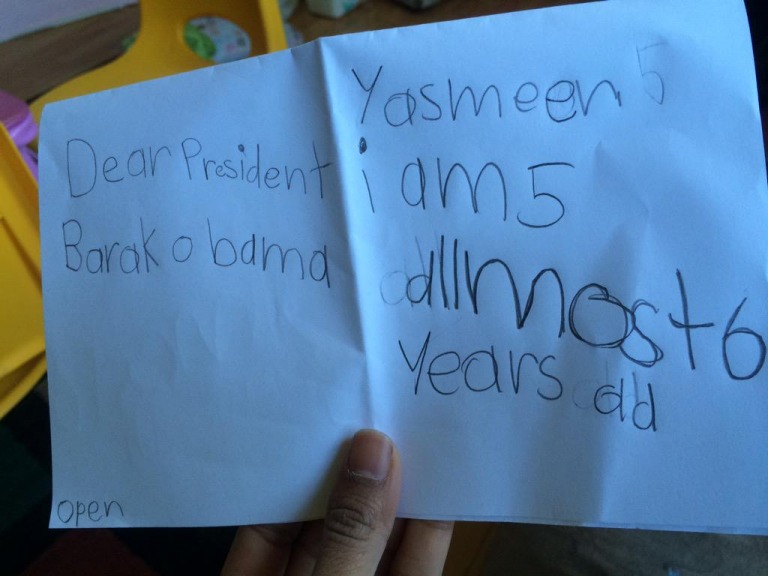 Dear President
Barak obama
open
Yasmeen 5
i am 5
allmost 6
Years old